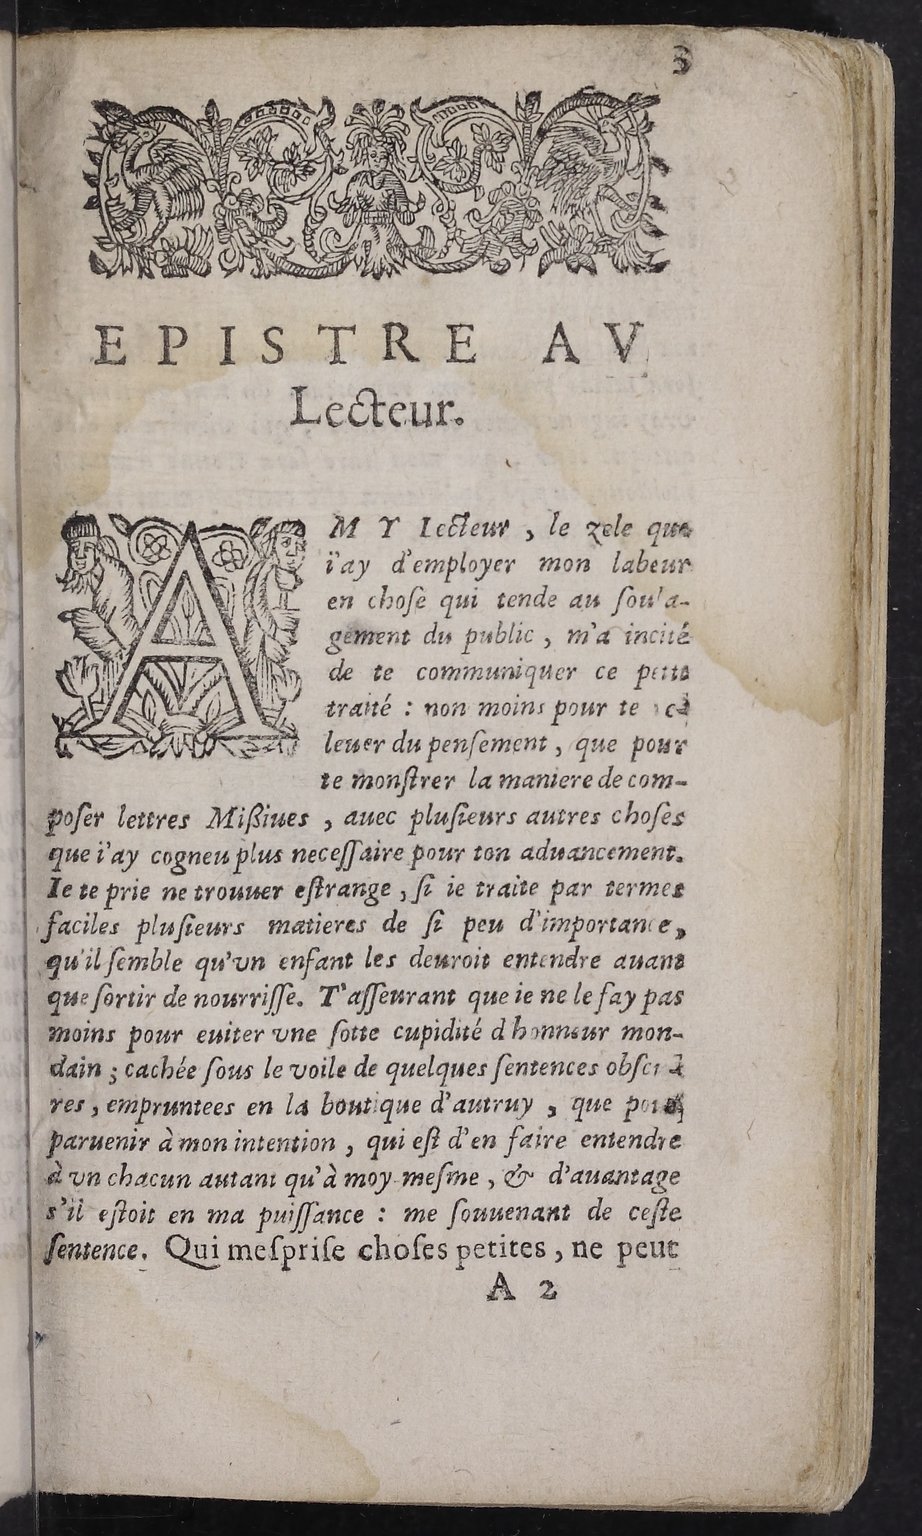 3
EPISTRE AV
Lecteur.
AMY lecteur, le zele que
i'ay d'employer mon labeur
en chose qui tende au soula-
gement du public, m'a incité
de te communiquer ce petit
traité : non moins pour te
leuer du pensement, que pour
te monſtrer la maniere de com-
poſer lettres Mißiues, auec pluſieurs autres choſes
que i'ay cogneu plus neceſſaire pour ton aduancement.
Ie te prie ne trouuer eſtrange, ſi ie traite par termes
faciles pluſieurs matieres de ſi peu d'importance,
qu'il ſemble qu'vn enfant les deuroit entendre auant
que ſortir de nourriſſe. T'aſſeurant que ie ne le fay pas
moins pour euiter vne ſotte cupidité d'honneur mon-
dain ; cachée ſous le voile de quelques ſentences obſcu-
res, empruntees en la boutique d'autruy, que pour
paruenir à mon intention, qui eſt d'en faire entendre
à vn chacun autant qu'à moy-meſme, & d'auantage
s'il eſtoit en ma puiſſance : me ſouuenant de ceſte
ſentence. Qui meſpriſe choſes petites, ne peut
A 2